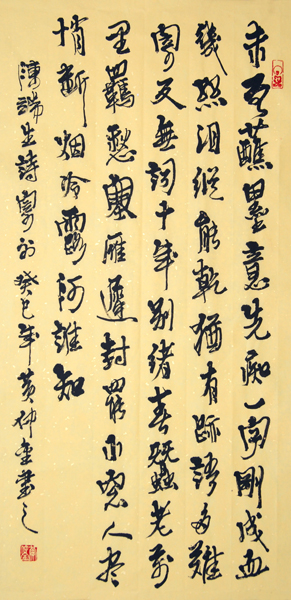 未曾蘸墨意先痴一字剛成血
幾絲泪縱能乾猶有跡語多難
寄反無詞十年別緒春蚕老萬
里羈愁塞雁遲封罷小窗人盡
悄斷烟冷露阿誰知
陳端生詩寄外癸巳年黄仲金書之